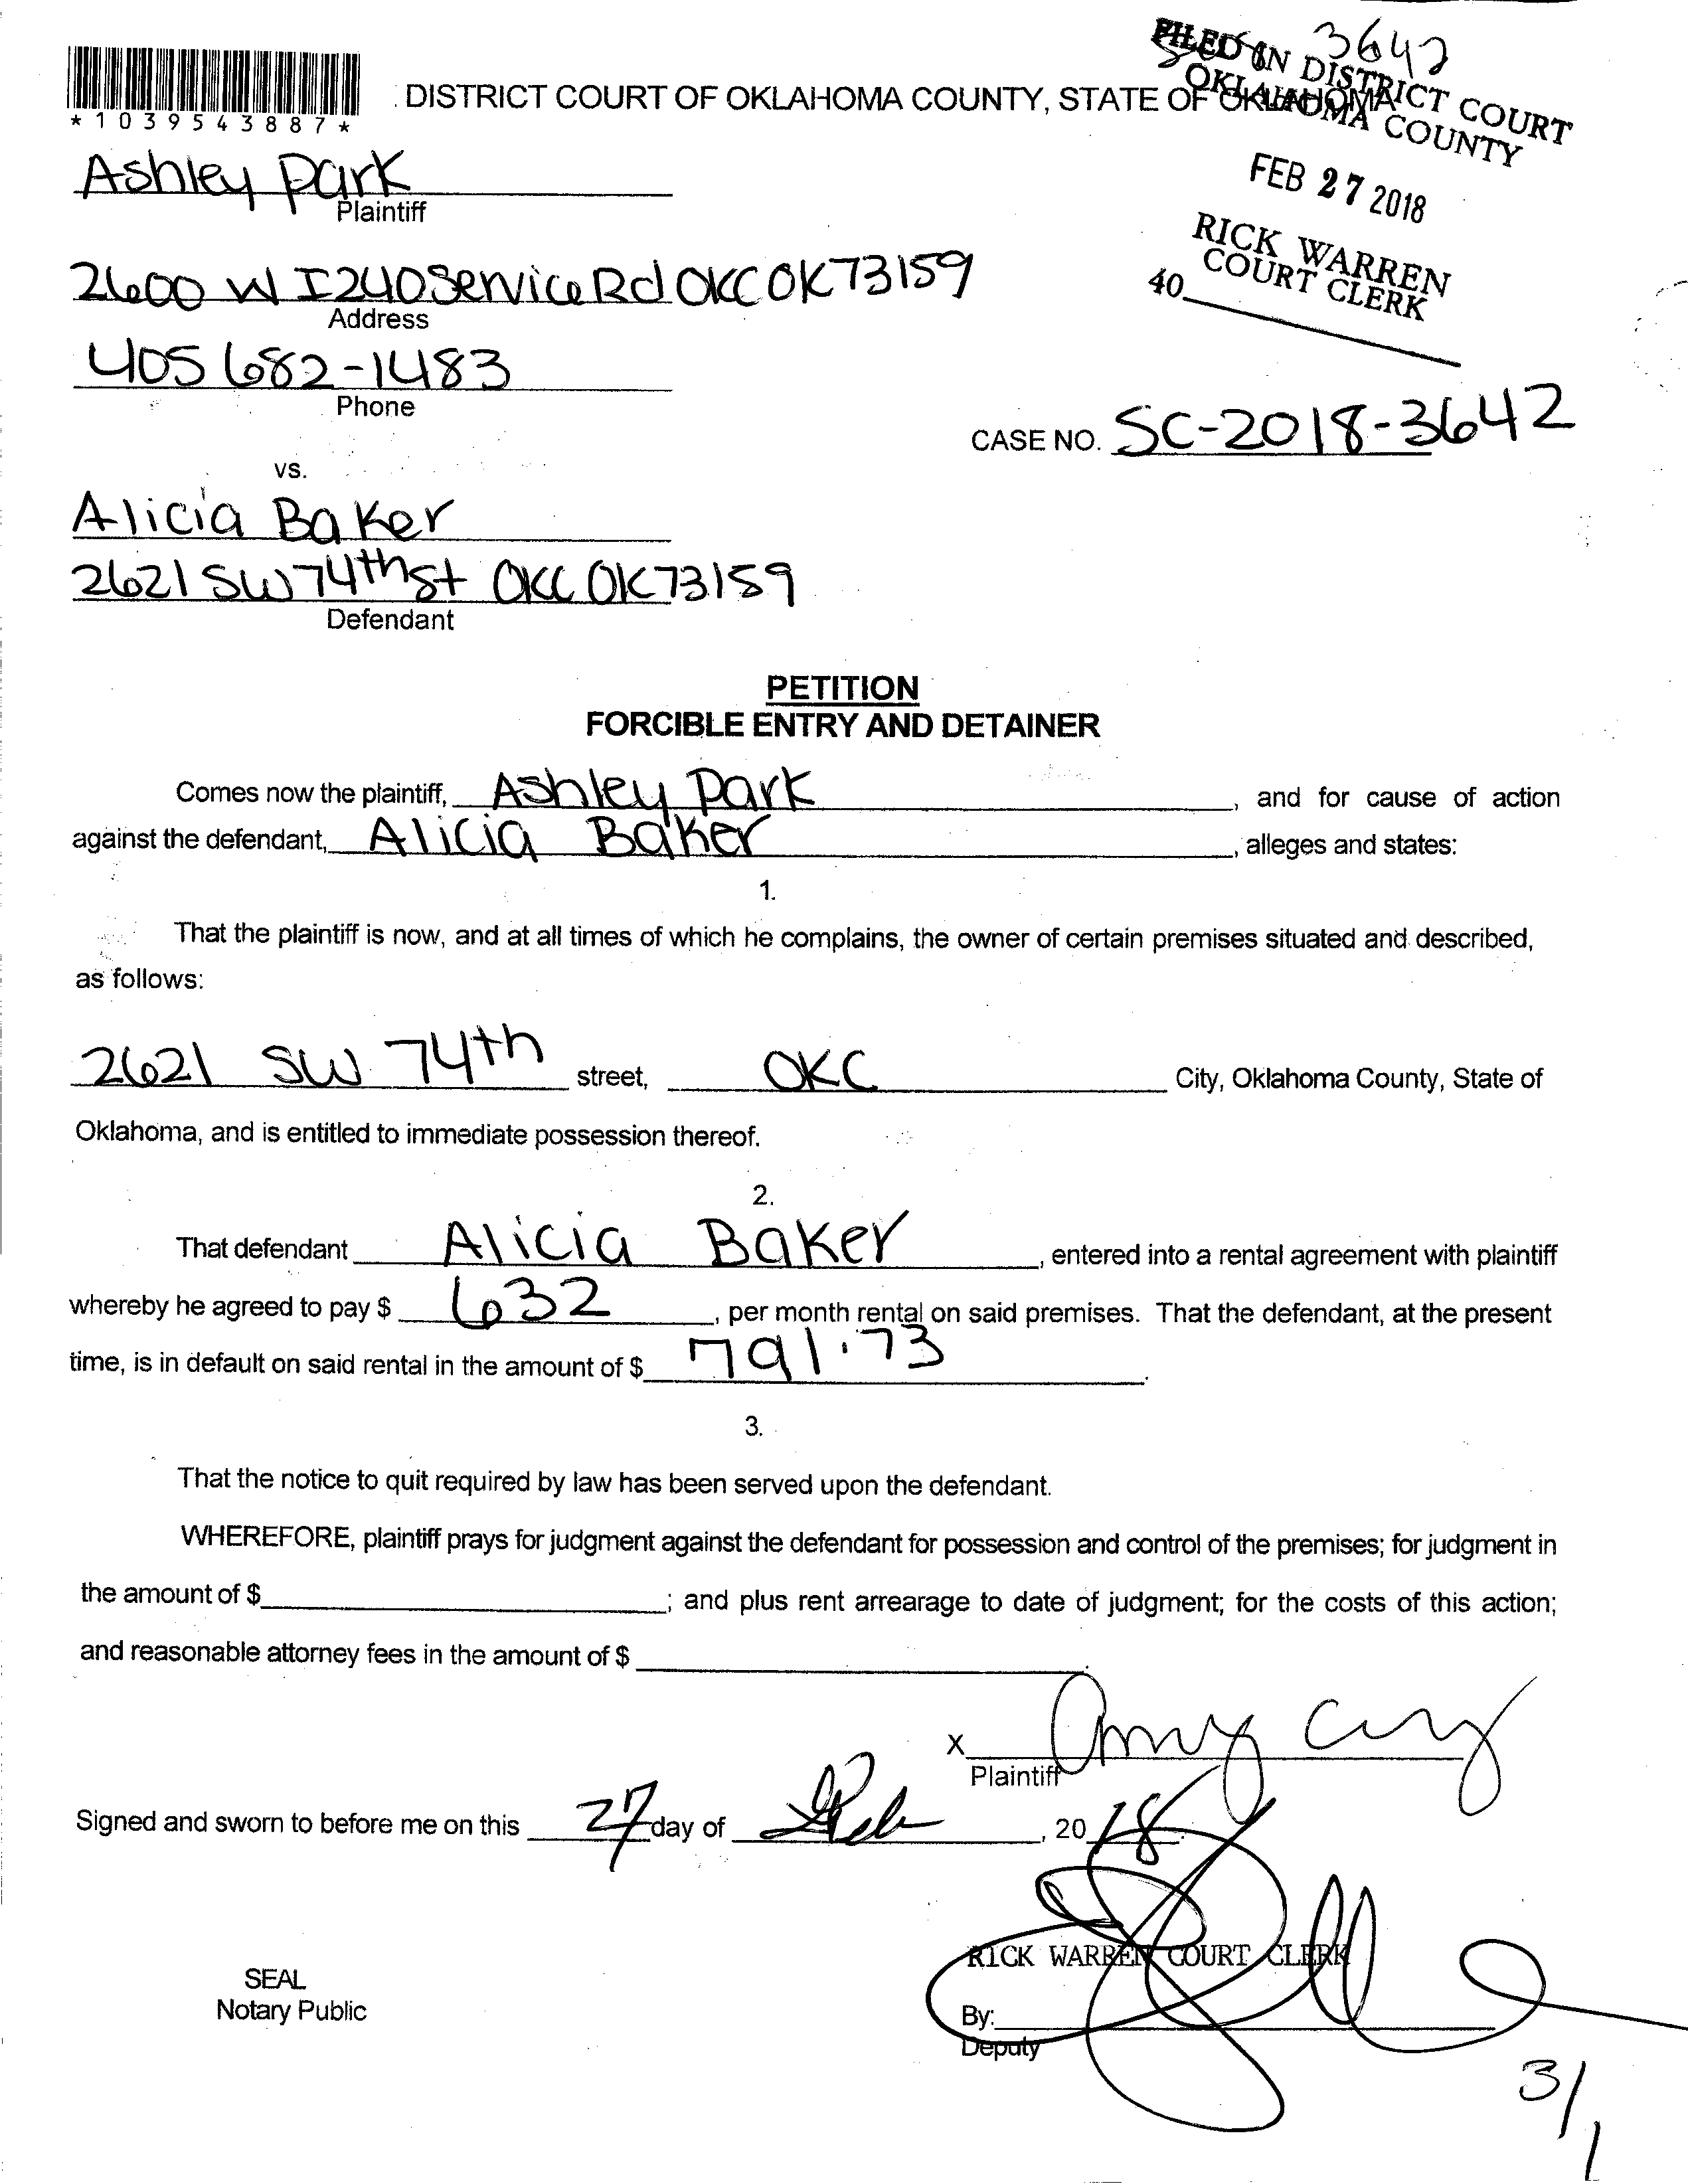 3642
FILED IN DISTRICT COURT
OKLAHOMA COUNTY
*1039543887*
DISTRICT COURT OF OKLAHOMA COUNTY, STATE OF OKLAHOMA
FEB 27 2018
RICK WARREN
COURT CLERK
40
Ashley Park
Plaintiff
2600 W I240 Service Rd OKC OK 73159
Address
405 682-1483
Phone
CASE NO. SC-2018-3642
vs.
Alicia Baker
2621 SW 74th St OKC OK 73159
Defendant
PETITION
FORCIBLE ENTRY AND DETAINER
Comes now the plaintiff, Ashley Park, and for cause of action
against the defendant, Alicia Baker, alleges and states:
1.
That the plaintiff is now, and at all times of which he complains, the owner of certain premises situated and described,
as follows:
2621 SW 74th street, OKC City, Oklahoma County, State of
Oklahoma, and is entitled to immediate possession thereof.
2.
That defendant Alicia Baker, entered into a rental agreement with plaintiff
whereby he agreed to pay $ 632, per month rental on said premises. That the defendant, at the present
time, is in default on said rental in the amount of $ 791.73.
3.
That the notice to quit required by law has been served upon the defendant.
WHEREFORE, plaintiff prays for judgment against the defendant for possession and control of the premises; for judgment in
the amount of $; and plus rent arrearage to date of judgment; for the costs of this action;
and reasonable attorney fees in the amount of $.
X Amy
Plaintiff
Signed and sworn to before me on this 27 day of Feb, 2018.
RICK WARREN COURT CLERK
SEAL
Notary Public
By:
Deputy
3/1